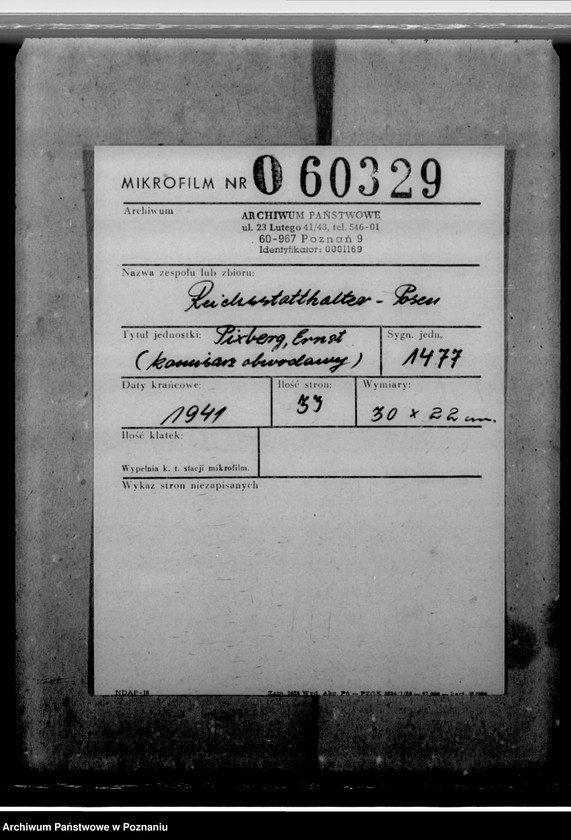 MIKROFILM NR O 60329
Archiwum
ARCHIWUM PAŃSTWOWE
ul. 23 Lutego 41/43, tel. 546-01
60-967 Poznań 9
Identyfikator: 0001169
Nazwa zespołu lub zbioru:
Reichsstatthalter - Posen
Tytuł jednostki: Pixberg, Ernst
(komisarz obwodowy)
Sygn. jedn.
1477
Daty krańcowe:
1941
Ilość stron:
33
Wymiary:
30 x 22 cm.
Ilość klatek:
Wypełnia k. t. stacji mikrofilm.
Wykaz stron niezapisanych
NDAP-18
Archiwum Państwowe w Poznaniu